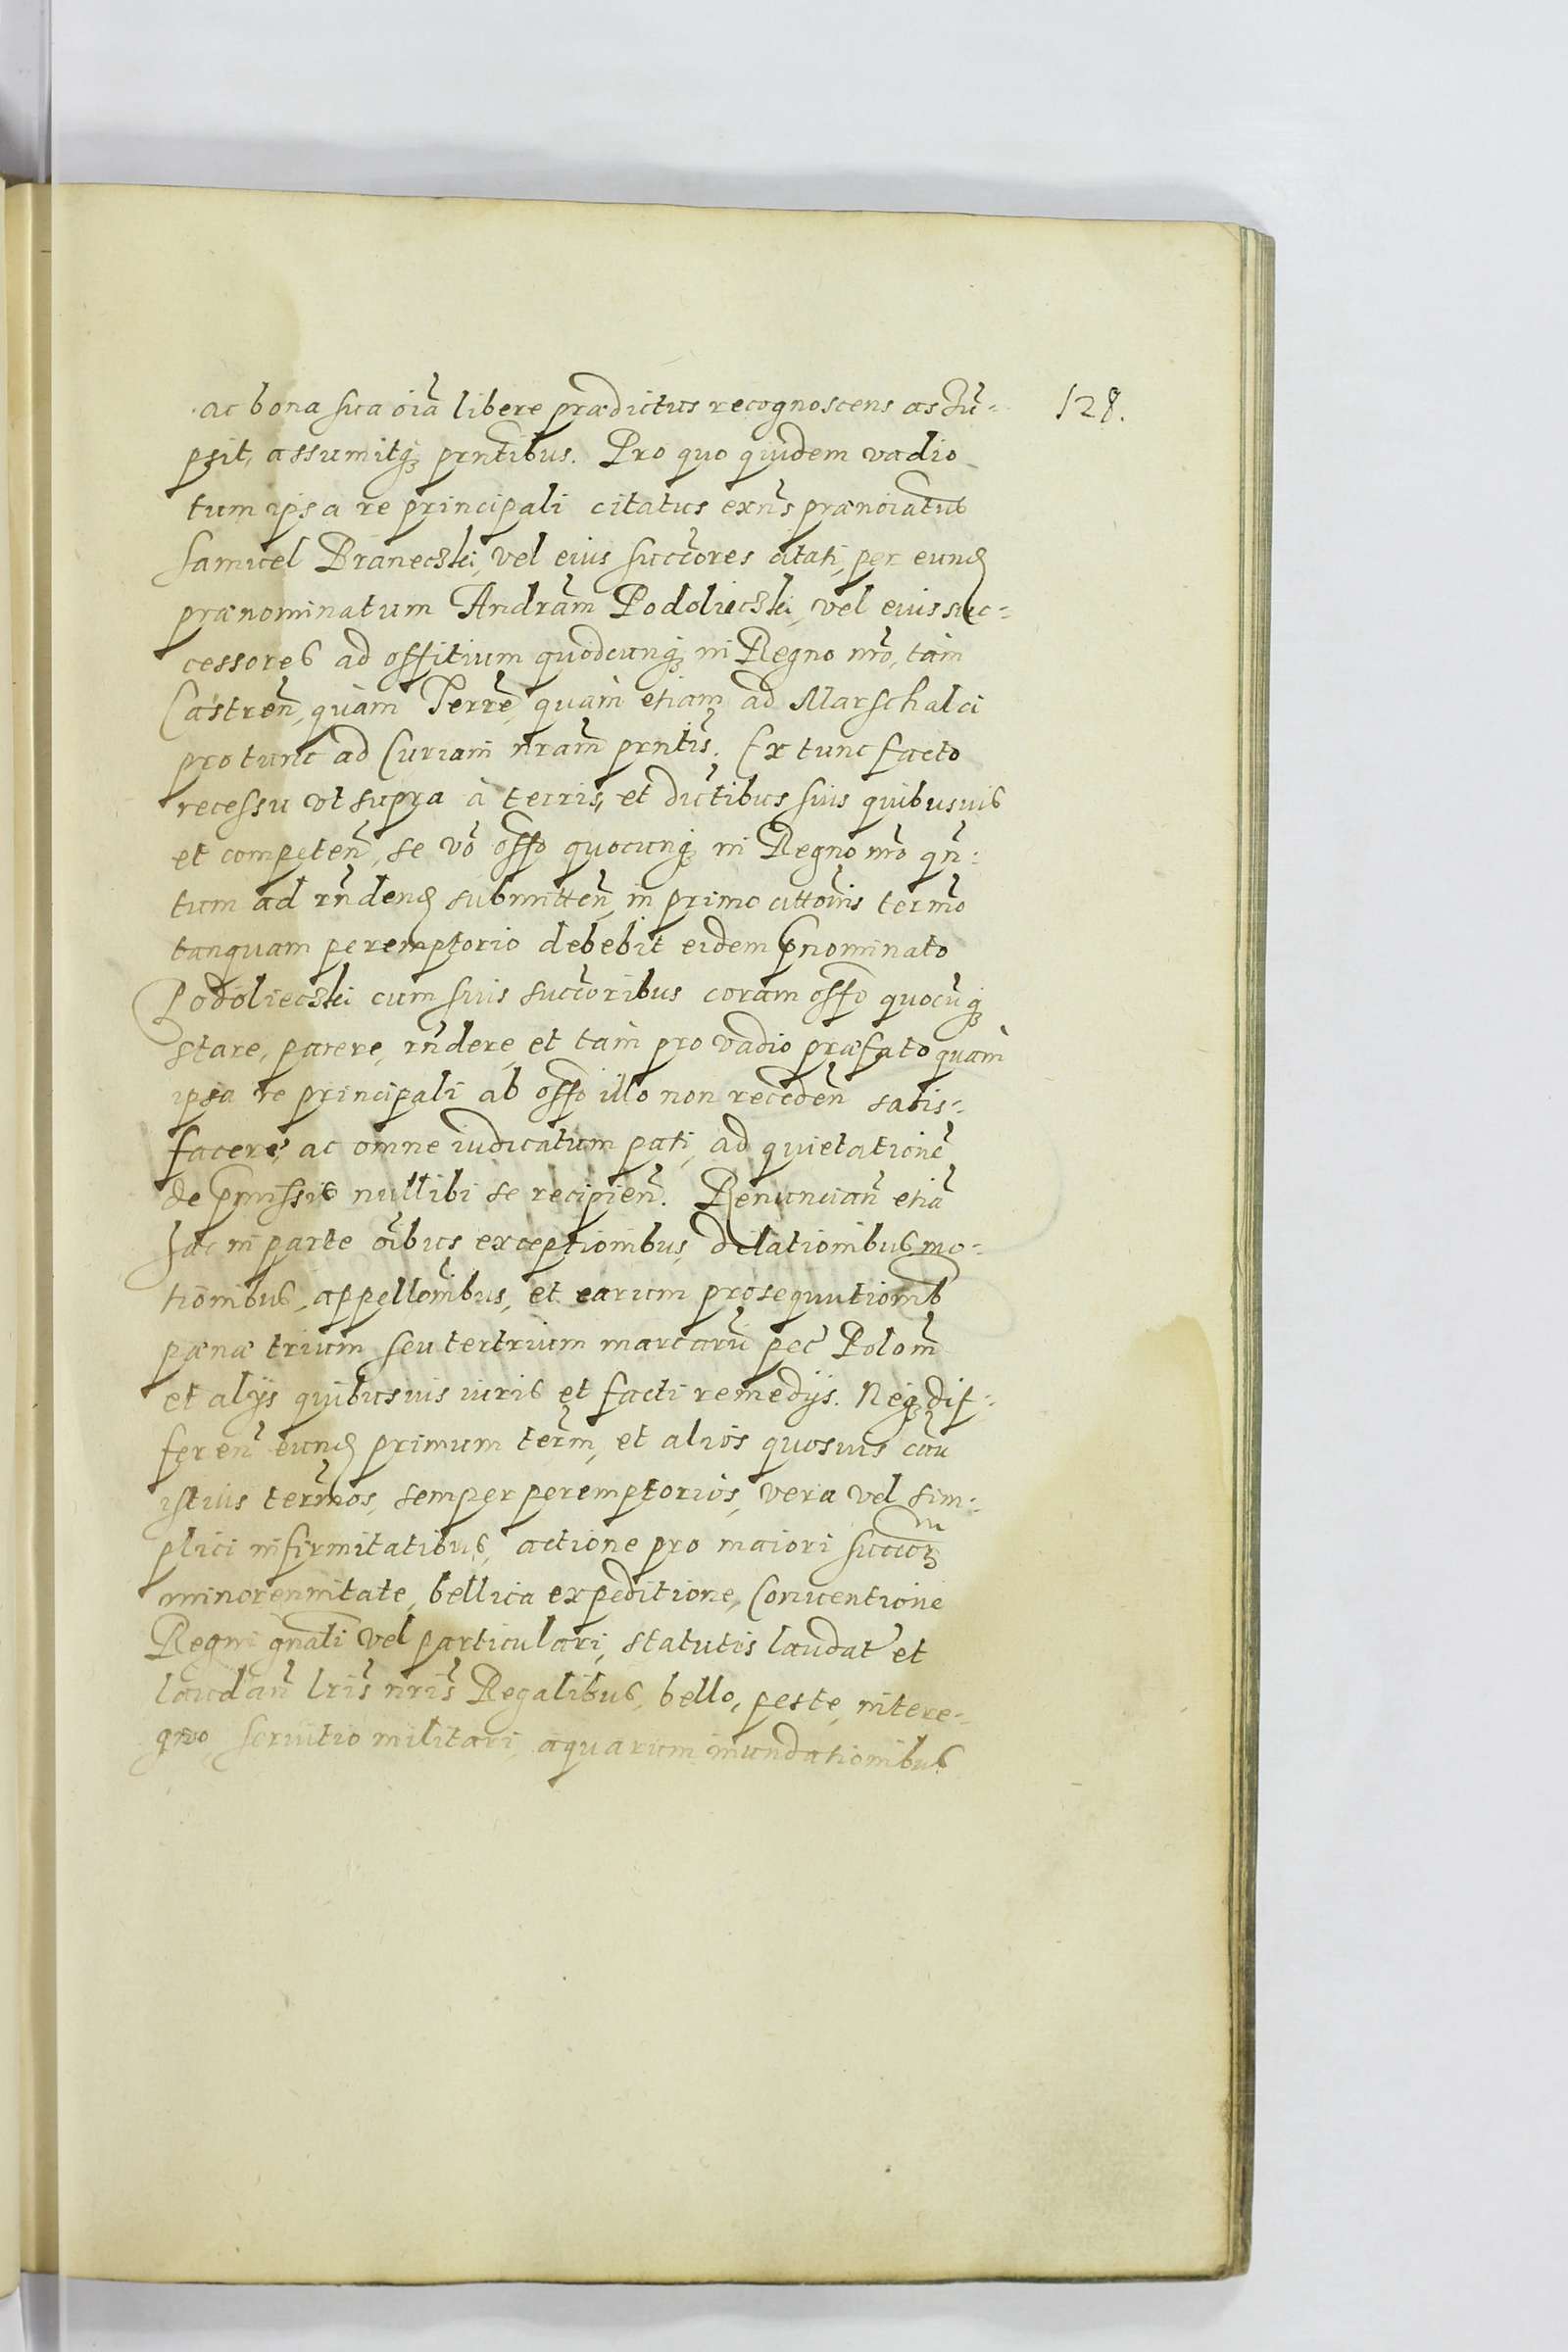 ac bona sua oîa libere prædictus recognoscens assũ-
128.
psit, assumitq; prntibus. Pro quo quidem vadio
tum ipsa re principali citatus exns prænoiatus
Samuel Branecski, vel eius succores citati, per eund
prænominatum Andram Podoliecski, vel eius suc-
cessores ad offitium quodcunq; in Regno nro, tàm
Castren, quàm Terre, quàm etiam ad Marschalci
pro tunc ad Curiam nram prntis. Ex tunc facto
recessu vt supra à terris, et dictibus suis quibusuis
et competen, se vo offo quocunq; in Regno nro qn-
tum ad rndend submitten, in primo cittonis termo
tanquam peremptorio debebit eidem pnominato
Podoliecski cum suis succoribus coram offo quocuq;
stare, parere, rndere, et tàm pro vadio præfato quàm
ipsa re principali ab offo illo non receden satis-
facere, ac omne iudicatum pati, ad quietationẽ
de pmissis nullibi se recipien. Renuncian etiã
hac in parte oibus exceptionibus, dilationibus, mo-
tionibus, appellonibus, et earum prosequutionib
pænæ trium seu tertrium marcarũ pec Polom
et alijs quibusuis iuris et facti remedijs. Neq; dif-
feren eund primum term, et aliòs quosuis cau
istius termos, semper peremptoriòs, vera vel sim-
plici infirmitatibus, actione pro maiori succor
minorennitate, bellica expeditione, Conuentione
Regni gnali vel particulari, statutis laudat et
laudan lris nris Regalibus, bello, peste, intere-
gno, seruitio militari, aquarum inundationibus